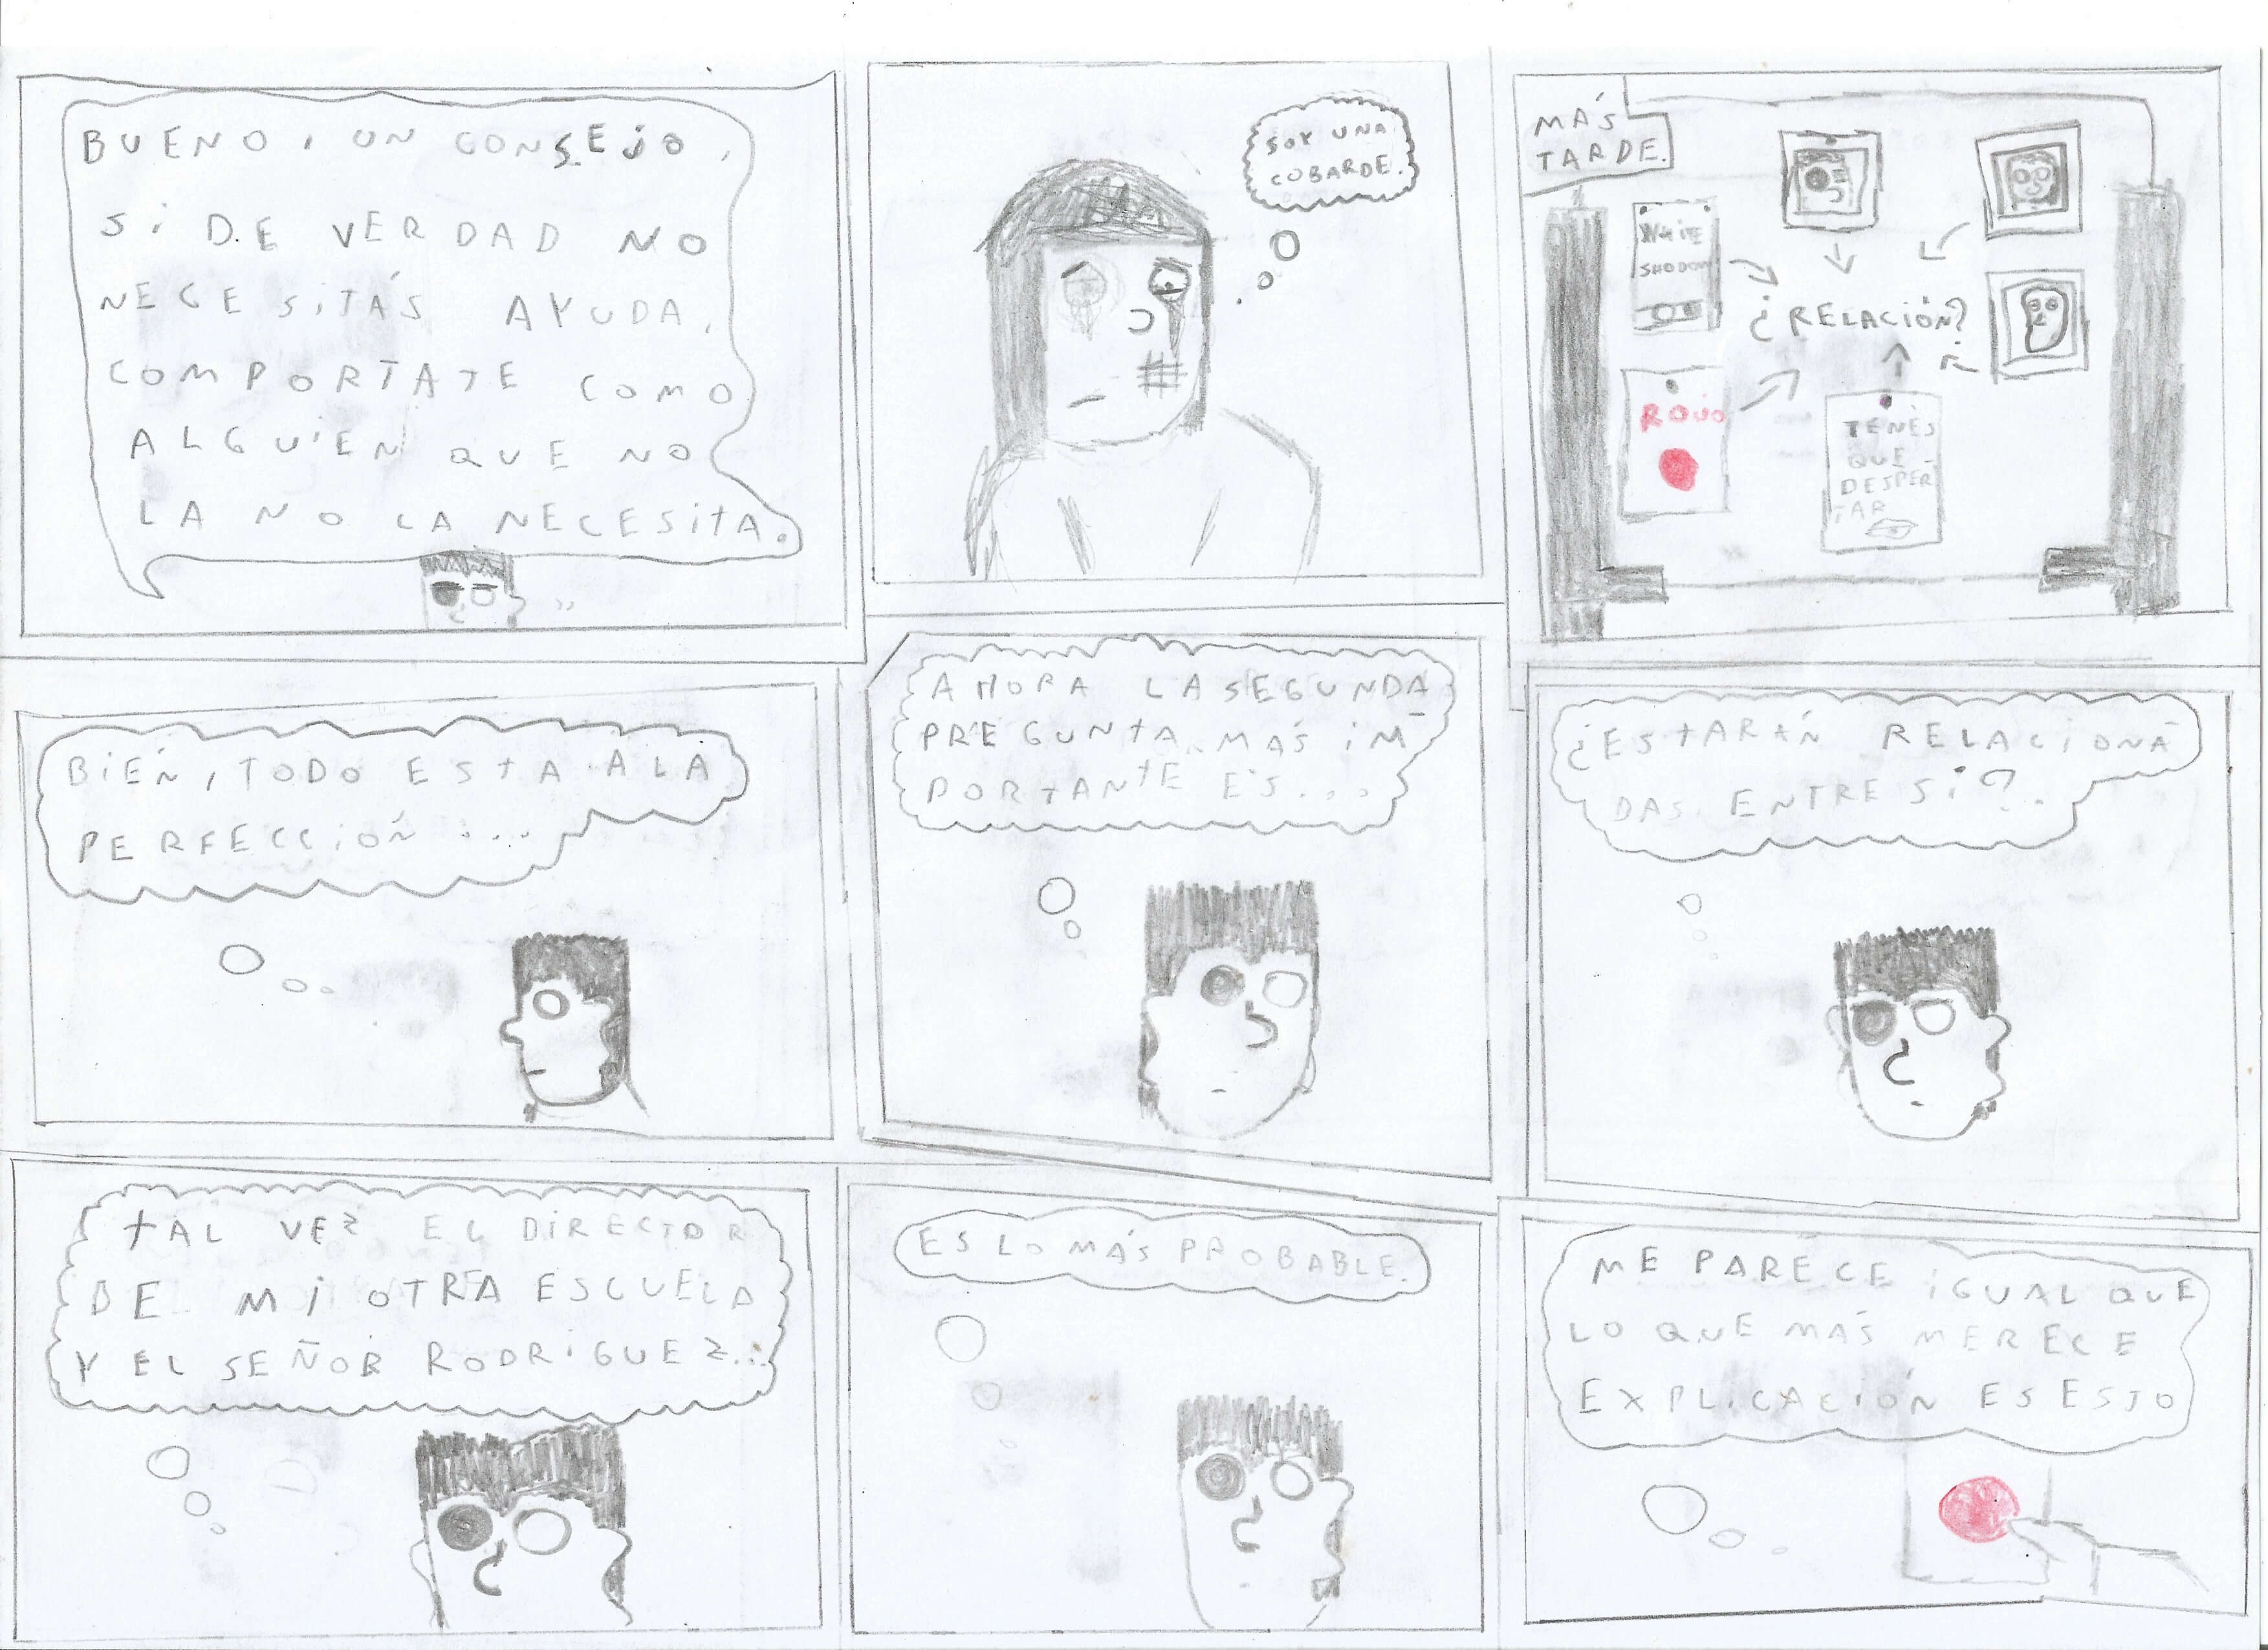 BUENO, UN CONSEJO,
SI DE VERDAD NO
NECESITÁS AYUDA,
COMPORTATE COMO
ALGUIEN QUE NO
LA NO LA NECESITA.
SOY UNA
COBARDE.
MÁS
TARDE.
WHITE
SHODOW
¿RELACIÓN?
ROJO
TENÉS
QUE
DESPER-
TAR
BIEN, TODO ESTA A LA
PERFECCIÓN...
AHORA LA SEGUNDA
PREGUNTA MÁS IM-
PORTANTE ES...
¿ESTARÁN RELACIONA-
DAS ENTRE SÍ?
TAL VEZ EL DIRECTOR
DE MI OTRA ESCUELA
Y EL SEÑOR RODRIGUEZ...
ES LO MÁS PROBABLE.
ME PARECE IGUAL QUE
LO QUE MÁS MERECE
EXPLICACIÓN ES ESTO